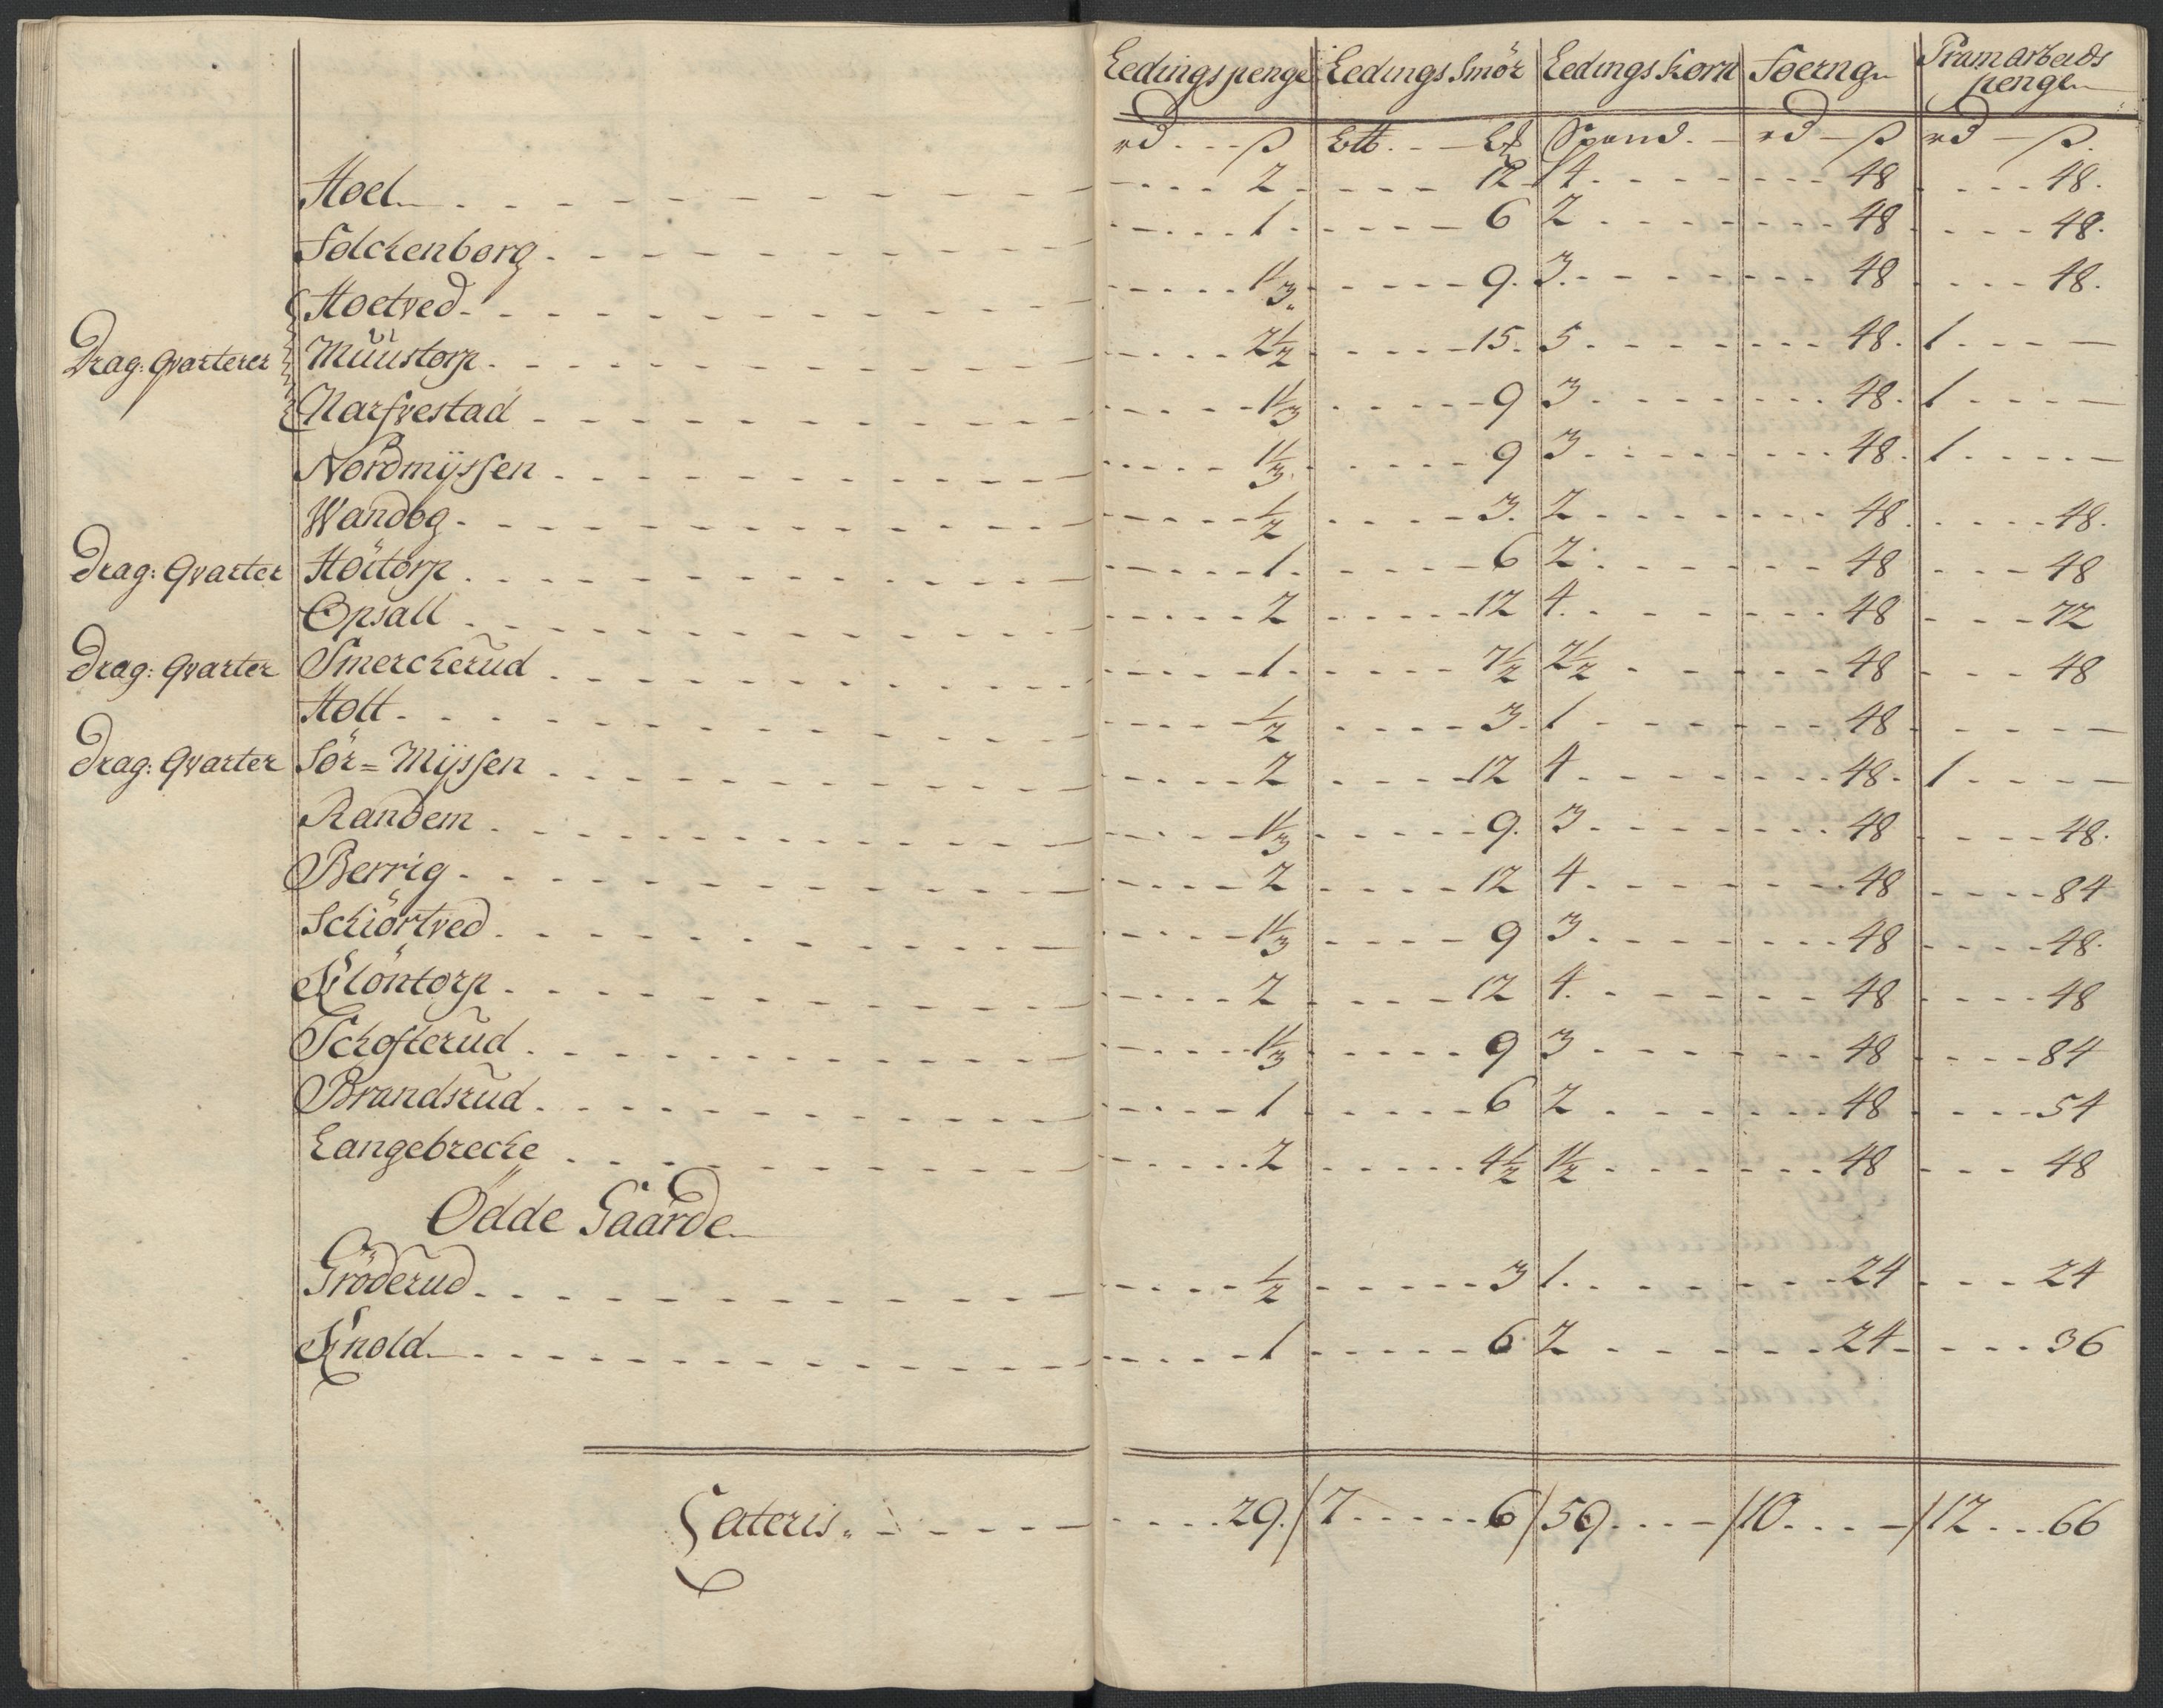 Ledingspenge Ledings Smör Ledings Korn Foering Pramarbeids penge
rd ß L℔ ℔ Spand rd ß rd ß
Hoel 2 12 4 48 48
Folckenborg 1 6 2 48 48
Hoetved 1½ 9 3 48 48
Drag: Qvarterer Muustorp 2½ 15 5 48 1
Narfvestad 1½ 9 3 48 1
Nordmÿssen 1½ 9 3 48 1
Wandog ½ 3 2 48 48
Drag: Qvarter Höitorp 1 6 2 48 48
Opsall 2 12 4 48 72
Drag: Qvarter Smerckerud 1 7½ 2½ 48 48
Holt ½ 3 1 48
Drag: Qvarter Sör=Mÿssen 2 12 4 48 1
Randem 1½ 9 3 48 48
Berrig 2 12 4 48 84
Schiörtved 1½ 9 3 48 48
Klöntorp 2 12 4 48 48
Schofterud 1½ 9 3 48 84
Brandsrud 1 6 2 48 54
Langebrecke 2 4½ 1½ 48 48
Ödde Gaarde
Gröderud ½ 3 1 24 24
Knold 1 6 2 24 36
Lateris 29 / 7 6 / 59 / 10 / 12 66